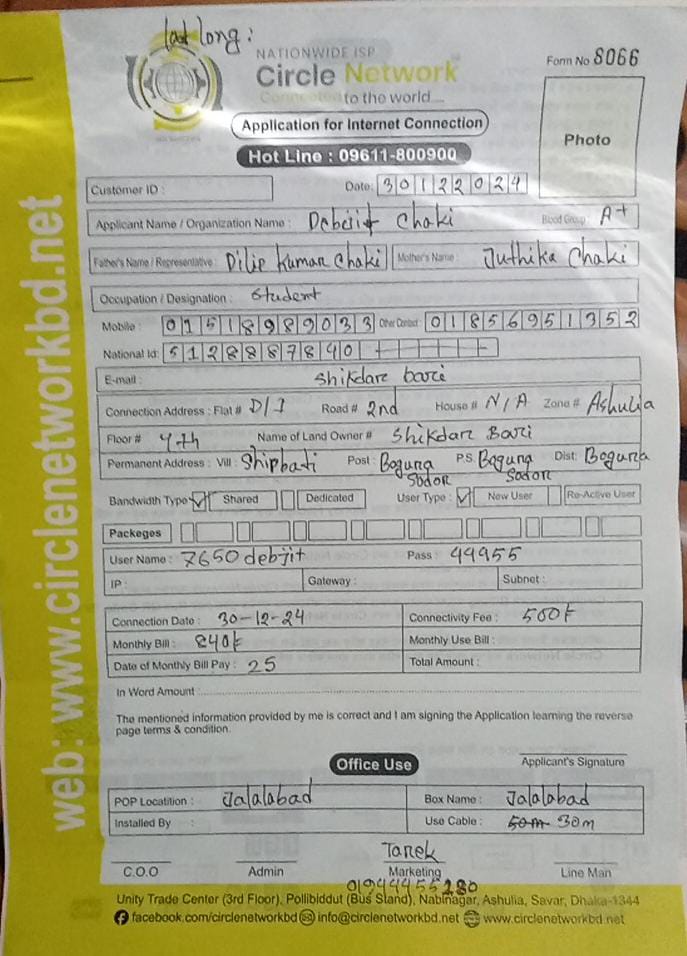 lat long :
NATIONWIDE ISP
Circle Network
Connected to the world....
Form No 8066
Application for Internet Connection
Photo
Hot Line : 09611-800900
Customer ID :
Date: 30122024
Applicant Name / Organization Name : Debjit Chaki Blood Group : A+
Father's Name / Representative : Dilip Kumar Chaki Mother's Name : Juthika Chaki
Occupation / Designation : Student
Mobile : 01518989033 Other Contact : 01856951352
National Id: 5128887840
E-mail : Shikdar bari
Connection Address : Flat # D/1 Road # 2nd House # N/A Zone # Ashulia
Floor # 4th Name of Land Owner # Shikdar Bari
Permanent Address : Vill : Shipbati Post : Bogura Sodor P.S. Bogura Sodor Dist: Bogura
Bandwidth Type Shared Dedicated User Type : New User Re-Active User
Packeges
User Name : 7650debjit Pass : 44955
IP : Gateway : Subnet :
Connection Date : 30-12-24 Connectivity Fee : 500৳
Monthly Bill : 840৳ Monthly Use Bill :
Date of Monthly Bill Pay : 25 Total Amount :
In Word Amount :
The mentioned information provided by me is correct and I am signing the Application learning the reverse
page terms & condition.
Office Use
Applicant's Signature
POP Locatition : Jalalabad Box Name : Jalalabad
Installed By : Use Cable : 50m 30m
Tarek
C.O.O Admin Marketing Line Man
Unity Trade Center (3rd Floor), Pollibiddut (Bus Stand), Nabinagar, Ashulia, Savar, Dhaka-1344
facebook.com/circlenetworkbd info@circlenetworkbd.net www.circlenetworkbd.net
web: www.circlenetworkbd.net